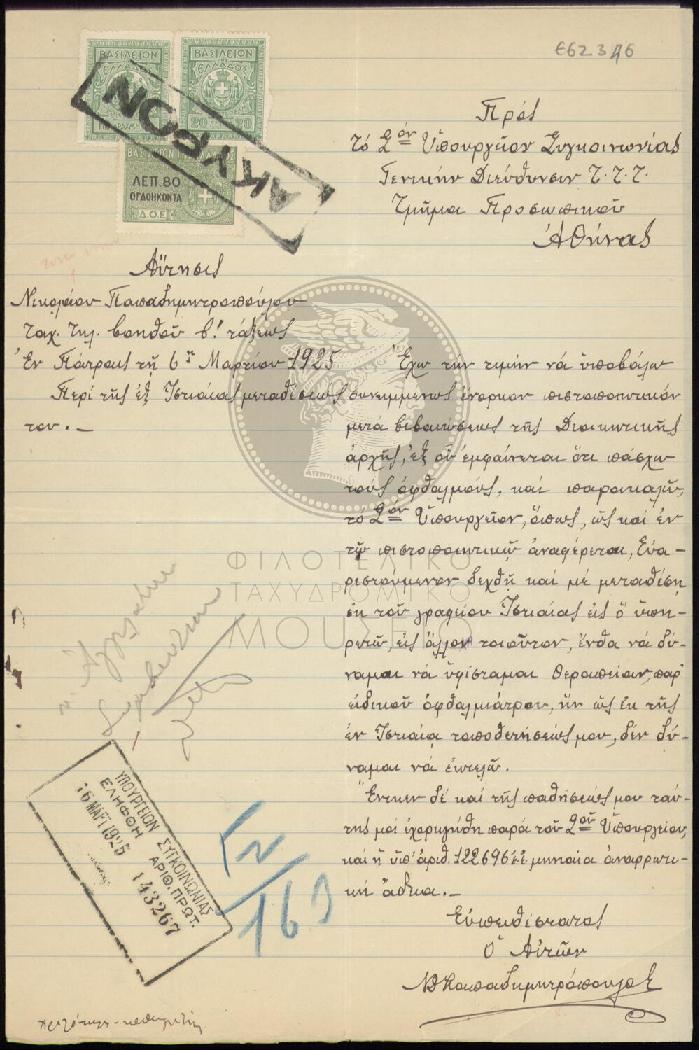 E62.3 16
ΒΑΣΙΛΕΙΟΝ
ΕΛΛΑΔΟΣ
ΒΑΣΙΛΕΙΟΝ
ΕΛΛΑΔΟΣ
20 20
ΑΚΥΡΟΝ
ΛΕΠ. 80
ΟΓΔΟΗΚΟΝΤΑ
Δ.Ο.Ε.
Πρὸς
τὸ Σὸν Ὑπουργεῖον Συγκοινωνίας
Γενικὴν Διεύθυνσιν Τ.Τ.Τ.
Τμῆμα Προσωπικοῦ
Ἀθήνας
Αἴτησις
Νικολάου Παπαδημητροπούλου
Ταχ. Τηλ. βοηθοῦ β! τάξεως
Ἐν Πάτραις τῇ 6ῃ Μαρτίου 1925
Περὶ τῆς ἐξ Ἰστιαίας μεταθέσεώς
του.-
Ἔχω τὴν τιμὴν νὰ ὑποβάλω
συνημμένως ἔνορκον πιστοποιητικὸν
μετὰ βεβαιώσεως τῆς Διοικητικῆς
ἀρχῆς, ἐξ οὗ ἐμφαίνεται ὅτι πάσχω
τοὺς ὀφθαλμούς, καὶ παρακαλῶ,
τὸ Σὸν Ὑπουργεῖον, ὅπως, ὡς καὶ ἐν
τῷ πιστοποιητικῷ ἀναφέρεται, Εὐα-
ρεστούμενον δεχθῇ καὶ μὲ μεταθέσῃ
ἐκ τοῦ γραφείου Ἰστιαίας εἰς ὃ ὑπη-
ρετῶ, εἰς ἄλλον τοιοῦτον, ἔνθα νὰ δύ-
ναμαι νὰ ὑφίσταμαι θεραπείαν, παρ'
εἰδικοῦ ὀφθαλμιάτρου, ἣν ὡς ἐκ τῆς
ἐν Ἰστιαίᾳ τοποθετήσεώς μου, δὲν δύ-
ναμαι νὰ ἐκτελῶ.
Ἕνεκεν δὲ καὶ τῆς παθήσεώς μου ταύ-
της μοὶ ἐχορηγήθη παρὰ τοῦ Σοῦ Ὑπουργείου,
καὶ ἡ ὑπ' ἀριθ. 122696 ἔ.ἔ. μηνιαία ἀναρρωτι-
κὴ ἄδεια.-
Εὐπειθέστατος
Ὁ Αἰτῶν
ΝΠαπαδημητρόπουλος
ΦΙΛΟΤΕΛΙΚΟ
ΤΑΧΥΔΡΟΜΙΚΟ
ΜΟΥΣ
ΥΠΟΥΡΓΕΙΟΝ ΣΥΓΚΟΙΝΩΝΙΑΣ
ΕΛΗΦΘΗ ΑΡΙΘ. ΠΡΩΤ.
16 ΜΑΡΤ 1925 143267
163